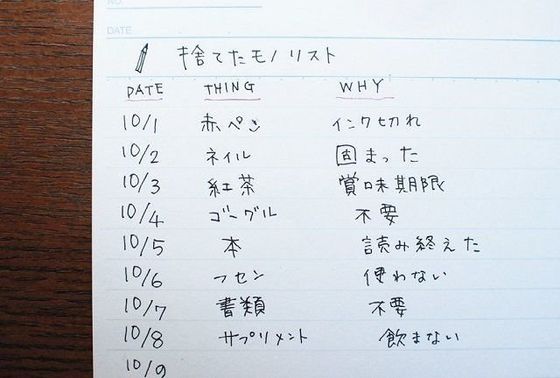 NO.
DATE
捨てたモノリスト
DATE THING WHY
10/1 赤ペン インク切れ
10/2 ネイル 固まった
10/3 紅茶 賞味期限
10/4 ゴーグル 不要
10/5 本 読み終えた
10/6 フセン 使わない
10/7 書類 不要
10/8 サプリメント 飲まない
10/9